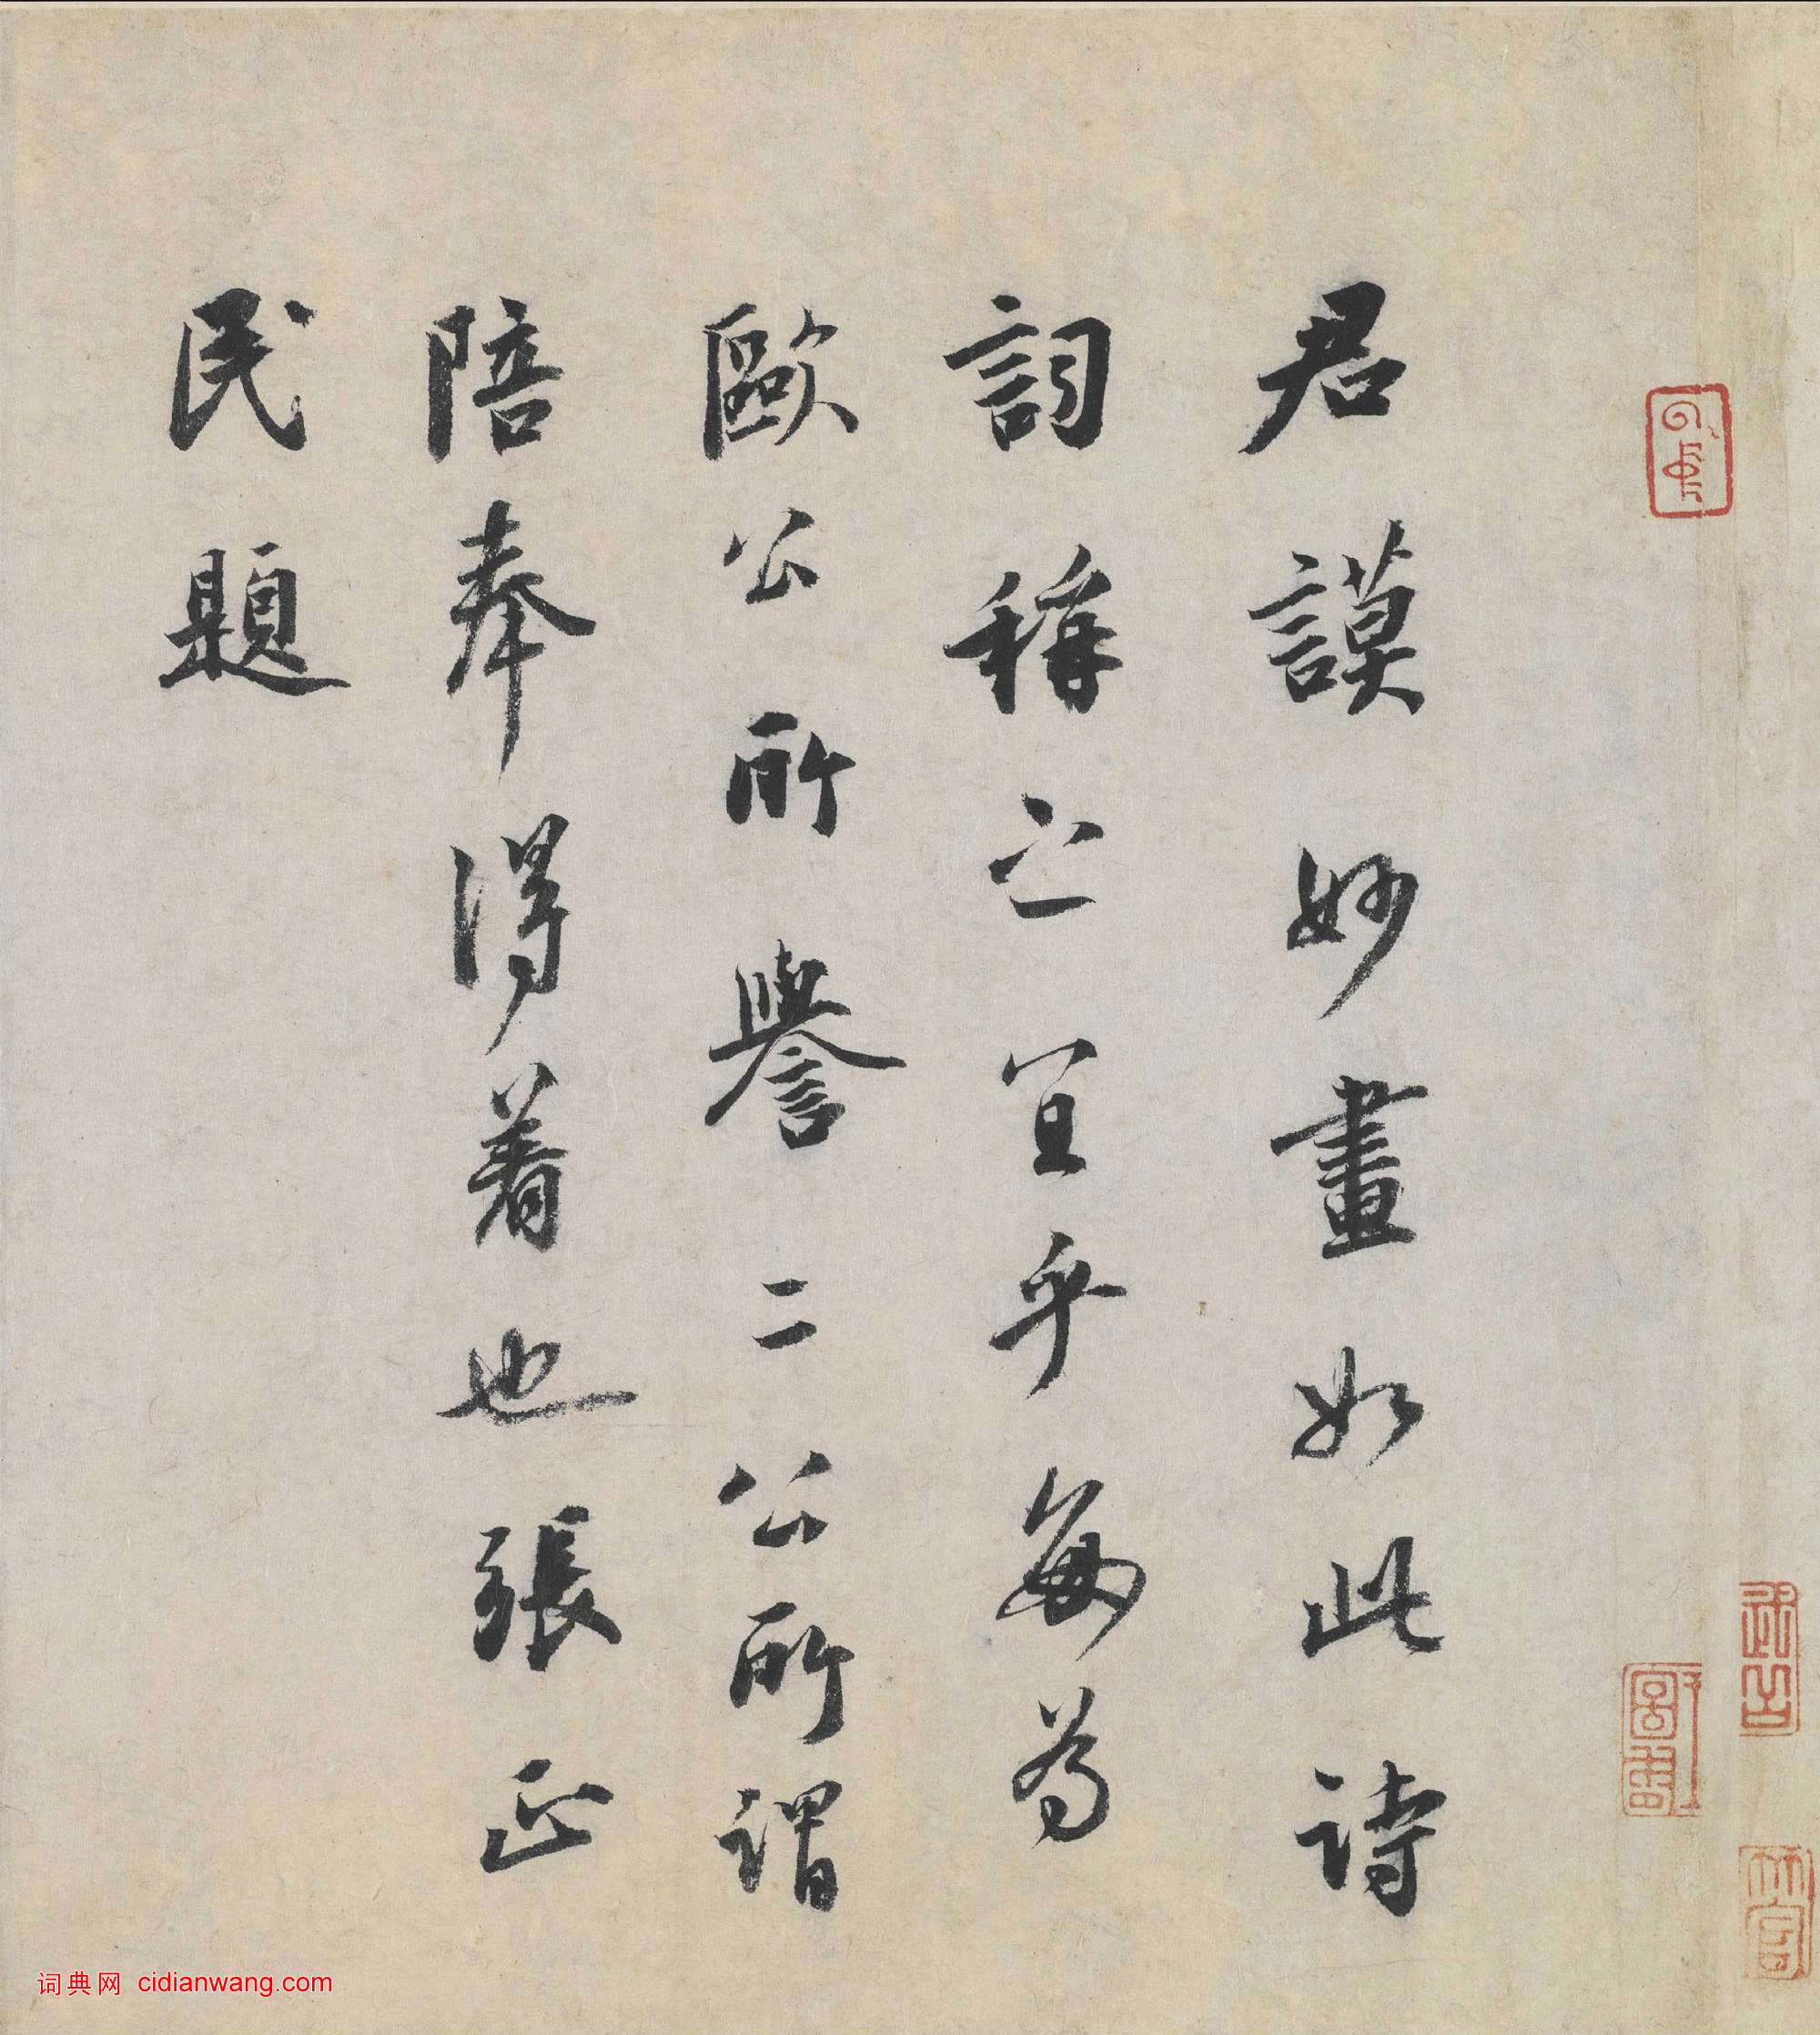 君謨妙畫如此詩
詞稱之宜乎每為
歐公所譽二公所謂
陪奉得著也張正
民題
词典网 cidianwang.com